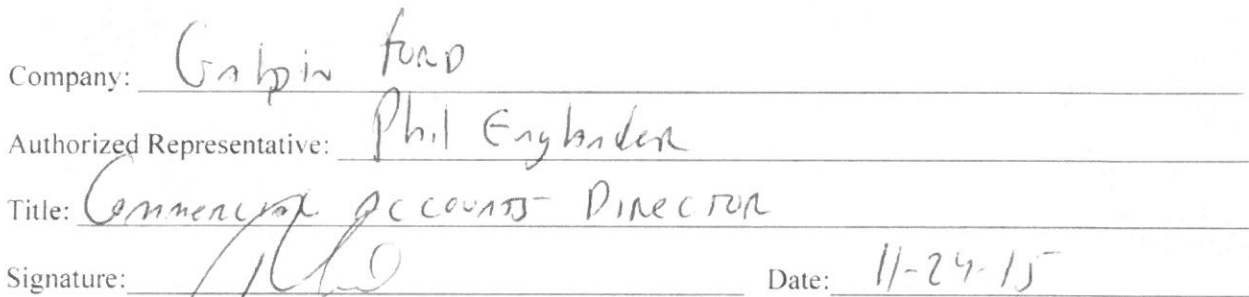 Company: Galpin Ford
Authorized Representative: Phil Englander
Title: Commercial Accounts Director
Signature: Phil
Date: 11-24-15